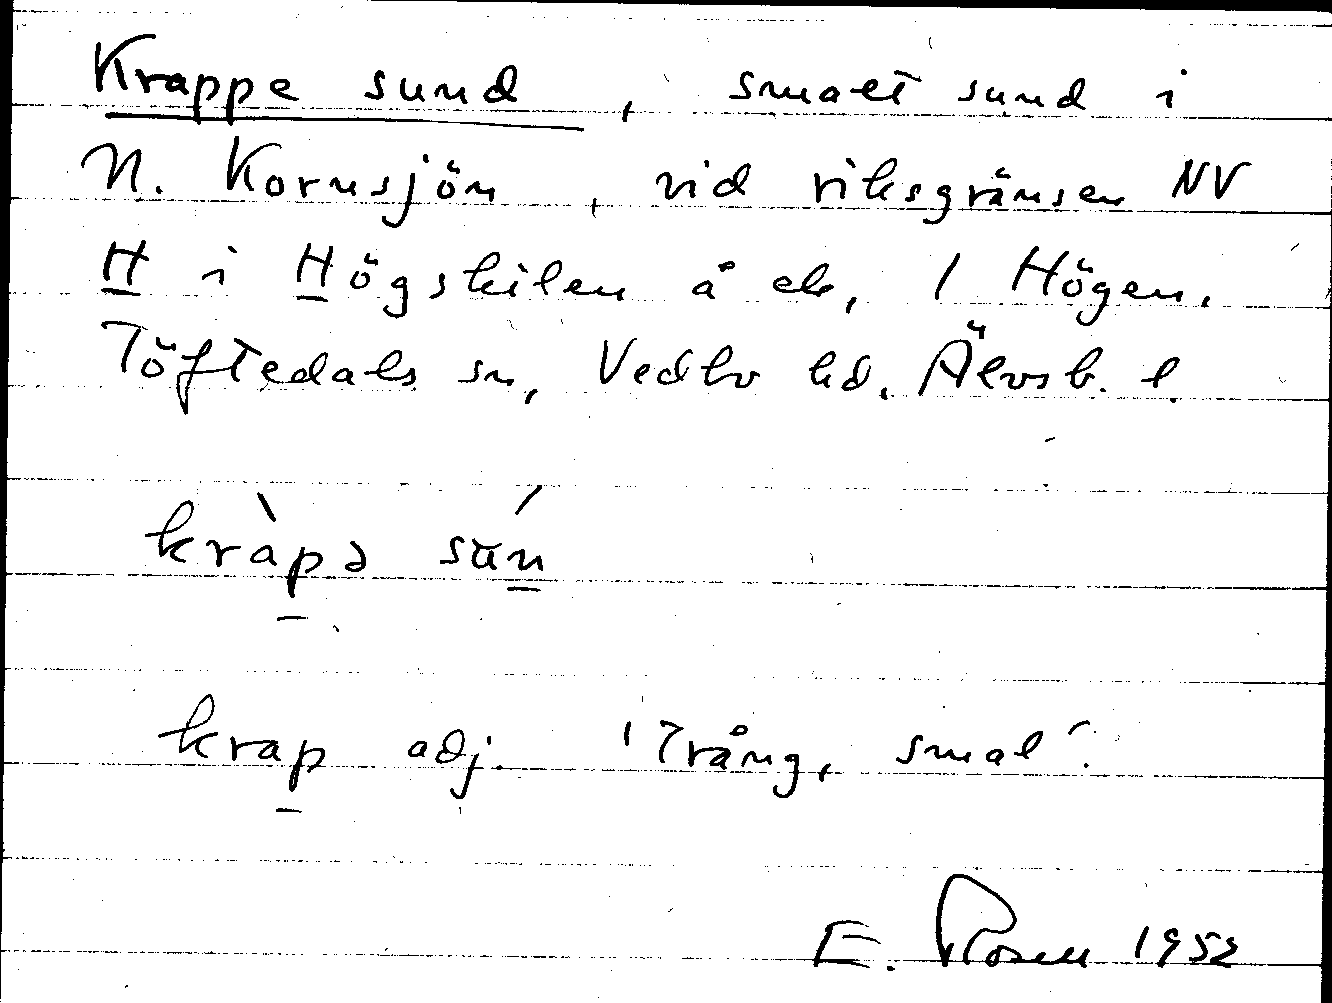 Krappe sund, smalt sund i
N. Kornsjön, vid riksgränsen NV
H i Högskilen å ek, 1 Högen.
Töftedals sn, Vedbo hd. Älvsb. l.
kràpə sún
krap adj. 'trång, smal'.
E. Rosell 1952